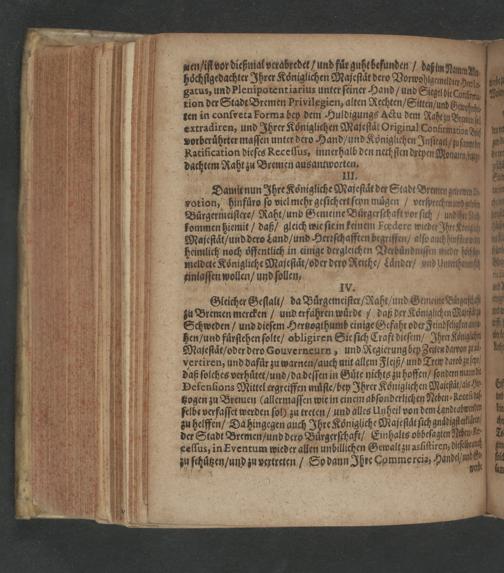 men/ist vor dießmal verabredet/und für guht befunden/ daß im Namen
höchstgedachter Ihrer Königlichen Majestät dero Vorwolgemeldter Herr
gatus, und Plenipotentiarius unter seiner Hand/ und Siegel die
tion der Stadt Bremen Privilegien, alten Rechten/Sitten/und
ten in consveta Forma bey dem Huldigungs Actu dem Raht zu Bremen sol
extradiren, und Ihrer Königlichen Majestät Original Confirmation
vorberührter massen unter dero Hand/und Königlichen Insiegel/zu sampt der
Ratification dieses Recessus, innerhalb den nechsten dreyen Monaten/
dachtem Raht zu Bremen ausantworten.
III.
Damit nun Ihre Königliche Majestät der Stadt Bremen
votion, hinfüro so viel mehr gesichert seyn mügen / versprechen
Bürgermeistere/ Raht/und Gemeine Bürgerschaft vor sich / und ihre
kommen hiemit / daß/ gleich wie sie in keinem Fœdere wieder Ihre
Majestät/und dero Land/und Herrschafften begriffen/ also auch hinfüro
heimlich noch öffentlich in einige dergleichen Verbündnissen wieder
meldete Königliche Majestät/oder dero Reiche/ Länder/ und
einlassen wollen/und sollen.
IV.
Gleicher Gestalt/ da Bürgemeister/Raht/und Gemeine Bürgerschaft
zu Bremen mercken / und erfahren würde / daß der Königlichen Majestät zu
Schweden / und diesem Hertzogthumb einige Gefahr oder Feindseligkeit
hen/und fürstehen solte/ obligiren Sie sich Craft diesem/ Ihrer Königlichen
Majestät/oder dero Gouverneurn, und Regierung bey Zeiten davon zu
vertiren, und dafür zu warnen/auch mit allem Fleiß/ und Trew daran zu seyn/
daß solches verhütet/und/da dessen in Güte nichts zu hoffen/ sondern
Defensions Mittel ergreiffen müste/bey Ihrer Königlichen Majestät/als
tzogen zu Bremen (allermassen wie in einem absonderlichen Neben-
selbe verfasset werden sol) zu treten/ und alles Unheil von dem Lande abwenden
zu helffen/ Da hingegen auch Ihre Königliche Majestät sich gnädigst erkläret
der Stadt Bremen/und dero Bürgerschaft/ Einhalts obbesagten
cessus, in Eventum wieder allen unbillichen Gewalt zu assistiren, dieselbe auch
zu schützen/und zu vertreten / So dann Ihre Commercia, Handel/und